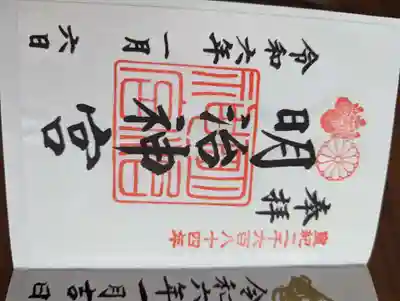 奉拝
皇紀二千六百八十四年
明治神宮
令和六年一月六日
令和六年一月吉日